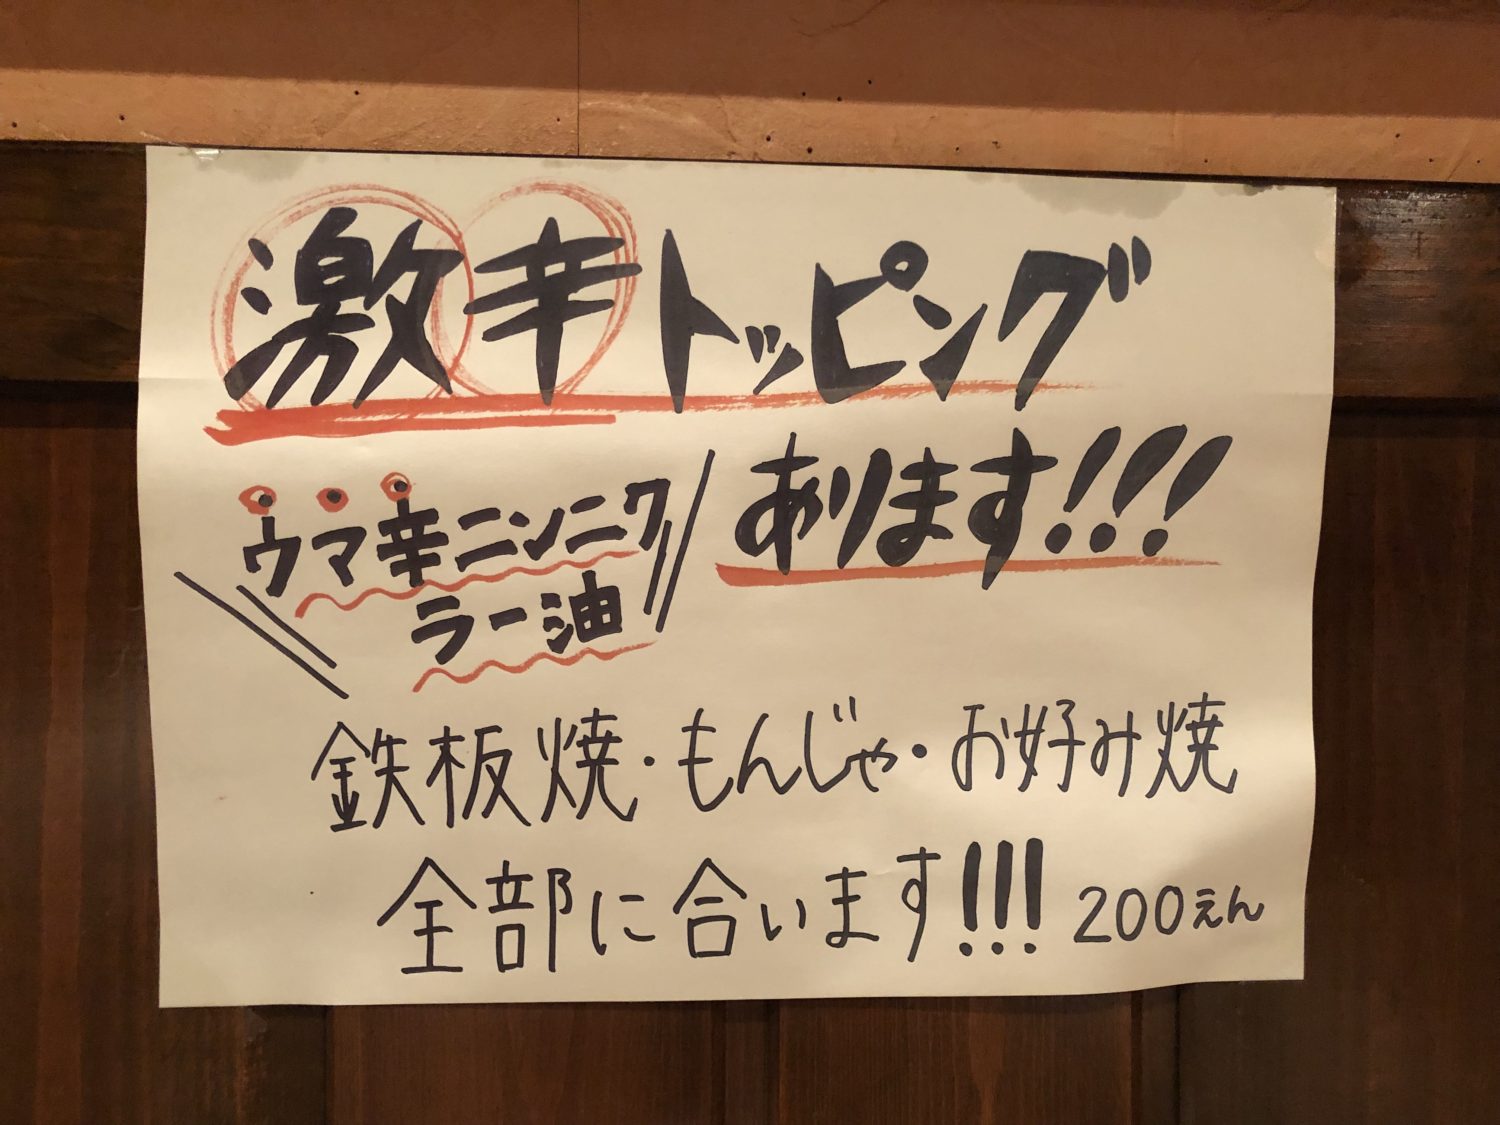 激辛トッピング
あります!!!
ウマ辛ニンニク
ラー油
鉄板焼・もんじゃ・お好み焼
全部に合います!!! 200えん